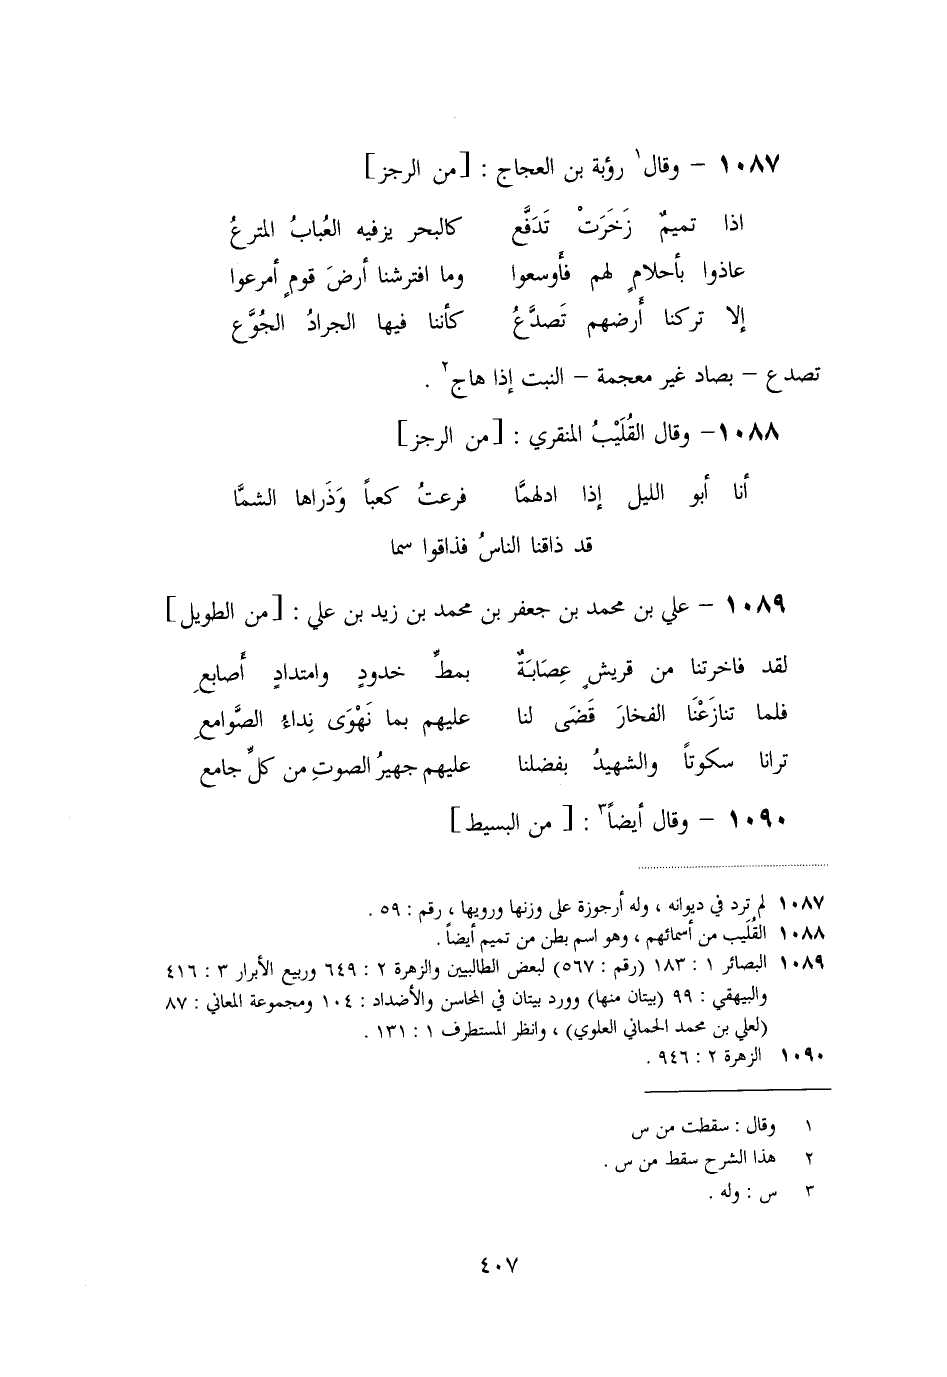 ١٠٨٧ – وقال١ رؤبة بن العجاج : [من الرجز]
اذا تميمٌ زَخَرَتْ تَدَفَّع كالبحر يزفيه العُبابُ المترعُ
عاذوا بأحلامٍ لهم فأوسعوا وما افترشنا أرضَ قومٍ أمرعوا
إلا تركنا أرضهم تَصدَّعُ كأننا فيها الجرادُ الجُوَّع
تصدع – بصاد غير معجمة – النبت إذا هاج٢ .
١٠٨٨ – وقال القُلَيْبُ المنقري : [من الرجز]
أنا أبو الليل إذا ادلهمَّا فرعتُ كعباً وَذَراها الشمَّا
قد ذاقنا الناسُ فذاقوا سما
١٠٨٩ – علي بن محمد بن جعفر بن محمد بن زيد بن علي : [من الطويل]
لقد فاخرتنا من قريشٍ عِصَابَةٌ بمطِّ خدودٍ وامتدادِ أصابعِ
فلما تنازَعْنَا الفخارَ قَضَى لنا عليهم بما نَهْوَى نِداءُ الصَّوامعِ
ترانا سكوتاً والشهيدُ بفضلنا عليهم جهيرُ الصوتِ من كلِّ جامع
١٠٩٠ – وقال أيضاً٣ : [ من البسيط]
١٠٨٧ لم ترد في ديوانه ، وله أرجوزة على وزنها ورويها ، رقم : ٥٩ .
١٠٨٨ القُلَيب من أسمائهم ، وهو اسم بطن من تميم أيضاً .
١٠٨٩ البصائر ١ : ١٨٣ (رقم : ٥٦٧) لبعض الطالبيين والزهرة ٢ : ٦٤٩ وربيع الأبرار ٣ : ٤١٦
والبيهقي : ٩٩ (بيتان منها) وورد بيتان في المحاسن والأضداد : ١٠٤ ومجموعة المعاني : ٨٧
(لعلي بن محمد الحماني العلوي) ، وانظر المستطرف ١ : ١٣١ .
١٠٩٠ الزهرة ٢ : ٩٤٦ .
١ وقال : سقطت من س
٢ هذا الشرح سقط من س .
٣ س : وله .
٤٠٧